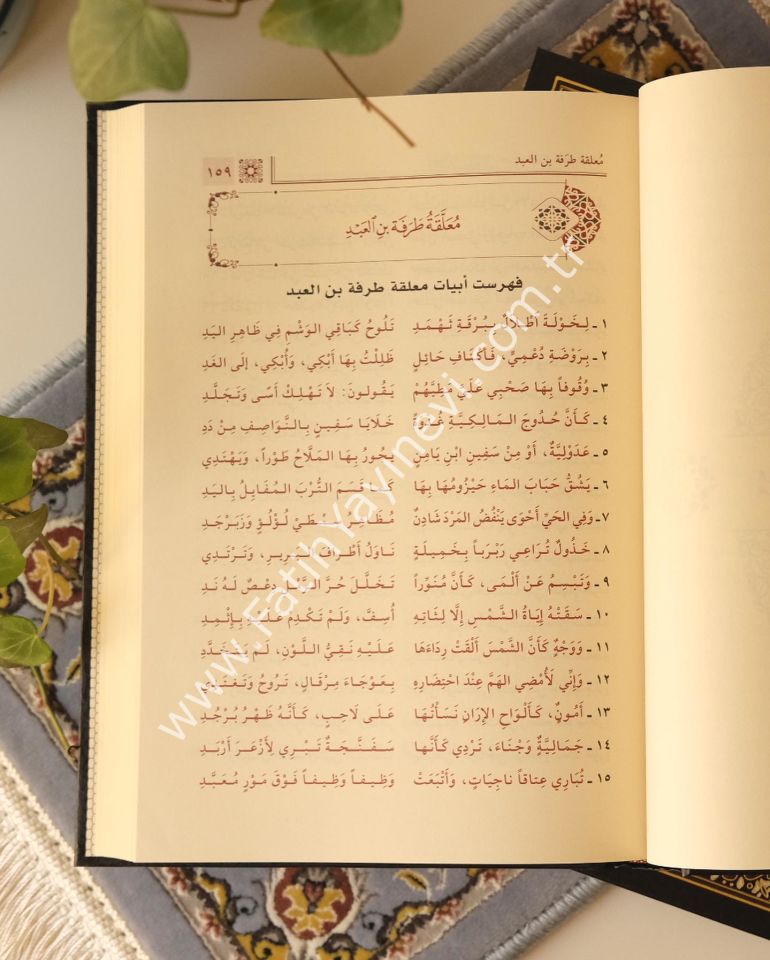 معلقة طرفة بن العبد
١٥٩
مُعَلَّقَةُ طَرَفَةَ بنِ العَبْدِ
فهرست أبيات معلقة طرفة بن العبد
١ ـ لِخَوْلَةَ أَطْلَالٌ بِبُرْقَةِ ثَهْمَدِ تَلُوحُ كَبَاقِي الوَشْمِ فِي ظَاهِرِ اليَدِ
٢ ـ بِرَوْضَةِ دُعْمِيٍّ، فَأَكْنَافِ حَائِلٍ ظَلِلْتُ بِهَا أَبْكِي، وَأُبْكِي، إلَى الغَدِ
٣ ـ وُقُوفاً بِهَا صَحْبِي عَلَيَّ مَطِيَّهُمْ يَقُولونَ: لاَ تَهْلِكْ أَسًى وَتَجَلَّدِ
٤ ـ كَأَنَّ حُدُوجَ المَالِكِيَّةِ غُدْوَةً خَلَايَا سَفِينٍ بِالنَّوَاصِفِ مِنْ دَدِ
٥ ـ عَدَوْلِيَّةٌ، أَوْ مِنْ سَفِينِ ابْنِ يَامِنٍ يَجُورُ بِهَا المَلَّاحُ طَوْراً، وَيَهْتَدِي
٦ ـ يَشُقُّ حَبَابَ المَاءِ حَيْزُومُهَا بِهَا كَمَا قَسَمَ التُّرْبَ المُفَايِلُ بِاليَدِ
٧ ـ وَفِي الحَيِّ أَحْوَى يَنْفُضُ المَرْدَ شَادِنٌ مُظَاهِرُ سِمْطَيْ لُؤْلُؤٍ وَزَبَرْجَدِ
٨ ـ خَذُولٌ تُرَاعِي رَبْرَباً بِخَمِيلَةٍ تَنَاوَلُ أَطْرَافَ البَرِيرِ، وَتَرْتَدِي
٩ ـ وَتَبْسِمُ عَنْ أَلْمَى، كَأَنَّ مُنَوِّراً تَخَلَّلَ حُرَّ الرَّمْلِ دِعْصٌ لَهُ نَدِ
١٠ ـ سَقَتْهُ إِيَاةُ الشَّمْسِ إِلَّا لِثَاتِهِ أُسِفَّ، وَلَمْ تَكْدِمْ عَلَيْهِ بِإِثْمِدِ
١١ ـ وَوَجْهٌ كَأَنَّ الشَّمْسَ أَلْقَتْ رِدَاءَهَا عَلَيْهِ نَقِيُّ اللَّوْنِ، لَمْ يَتَخَدَّدِ
١٢ ـ وَإِنِّي لَأُمْضِي الهَمَّ عِنْدَ احْتِضَارِهِ بِعَوْجَاءَ مِرْقَالٍ، تَرُوحُ وَتَغْتَدِي
١٣ ـ أَمُونٍ، كَأَلْوَاحِ الإِرَانِ نَسَأْتُهَا عَلَى لَاحِبٍ، كَأَنَّهُ ظَهْرُ بُرْجُدِ
١٤ ـ جَمَالِيَّةٌ وَجْنَاءُ، تَرْدِي كَأَنَّها سَفَنَّجَةٌ تَبْرِي لِأَزْعَرَ أَرْبَدِ
١٥ ـ تُبَارِي عِتاقاً ناجِيَاتٍ، وَأَتْبَعَتْ وَظِيفاً وَظِيفاً فَوْقَ مَوْرٍ مُعَبَّدِ
www.FatihYayinevi.com.tr